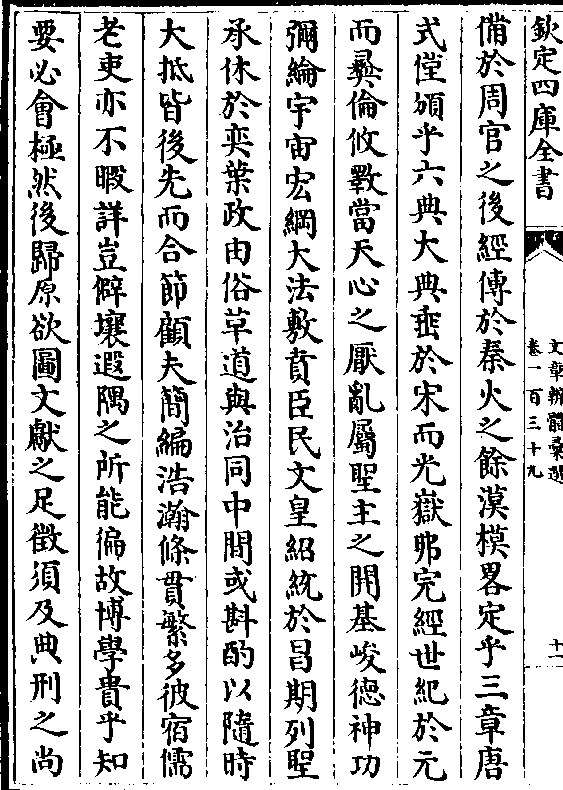 欽定四庫全書
文章辨體彙選
卷一百三十九
十一
備於周官之後經傳於秦火之餘漢模畧定乎三章唐
式僅頒乎六典大典垂於宋而光嶽弗完經世紀於元
而彛倫攸斁當天心之厭亂屬聖主之開基峻德神功
彌綸宇宙宏綱大法敷賁臣民文皇紹統於昌期列聖
承休於奕葉政由俗草道與治同中間或斟酌以隨時
大抵皆後先而合節顧夫簡編浩瀚條貫繁多彼宿儒
老吏亦不暇詳豈僻壤遐隅之所能徧故博學貴乎知
要必會極然後歸原欲圖文獻之足徴須及典刑之尚